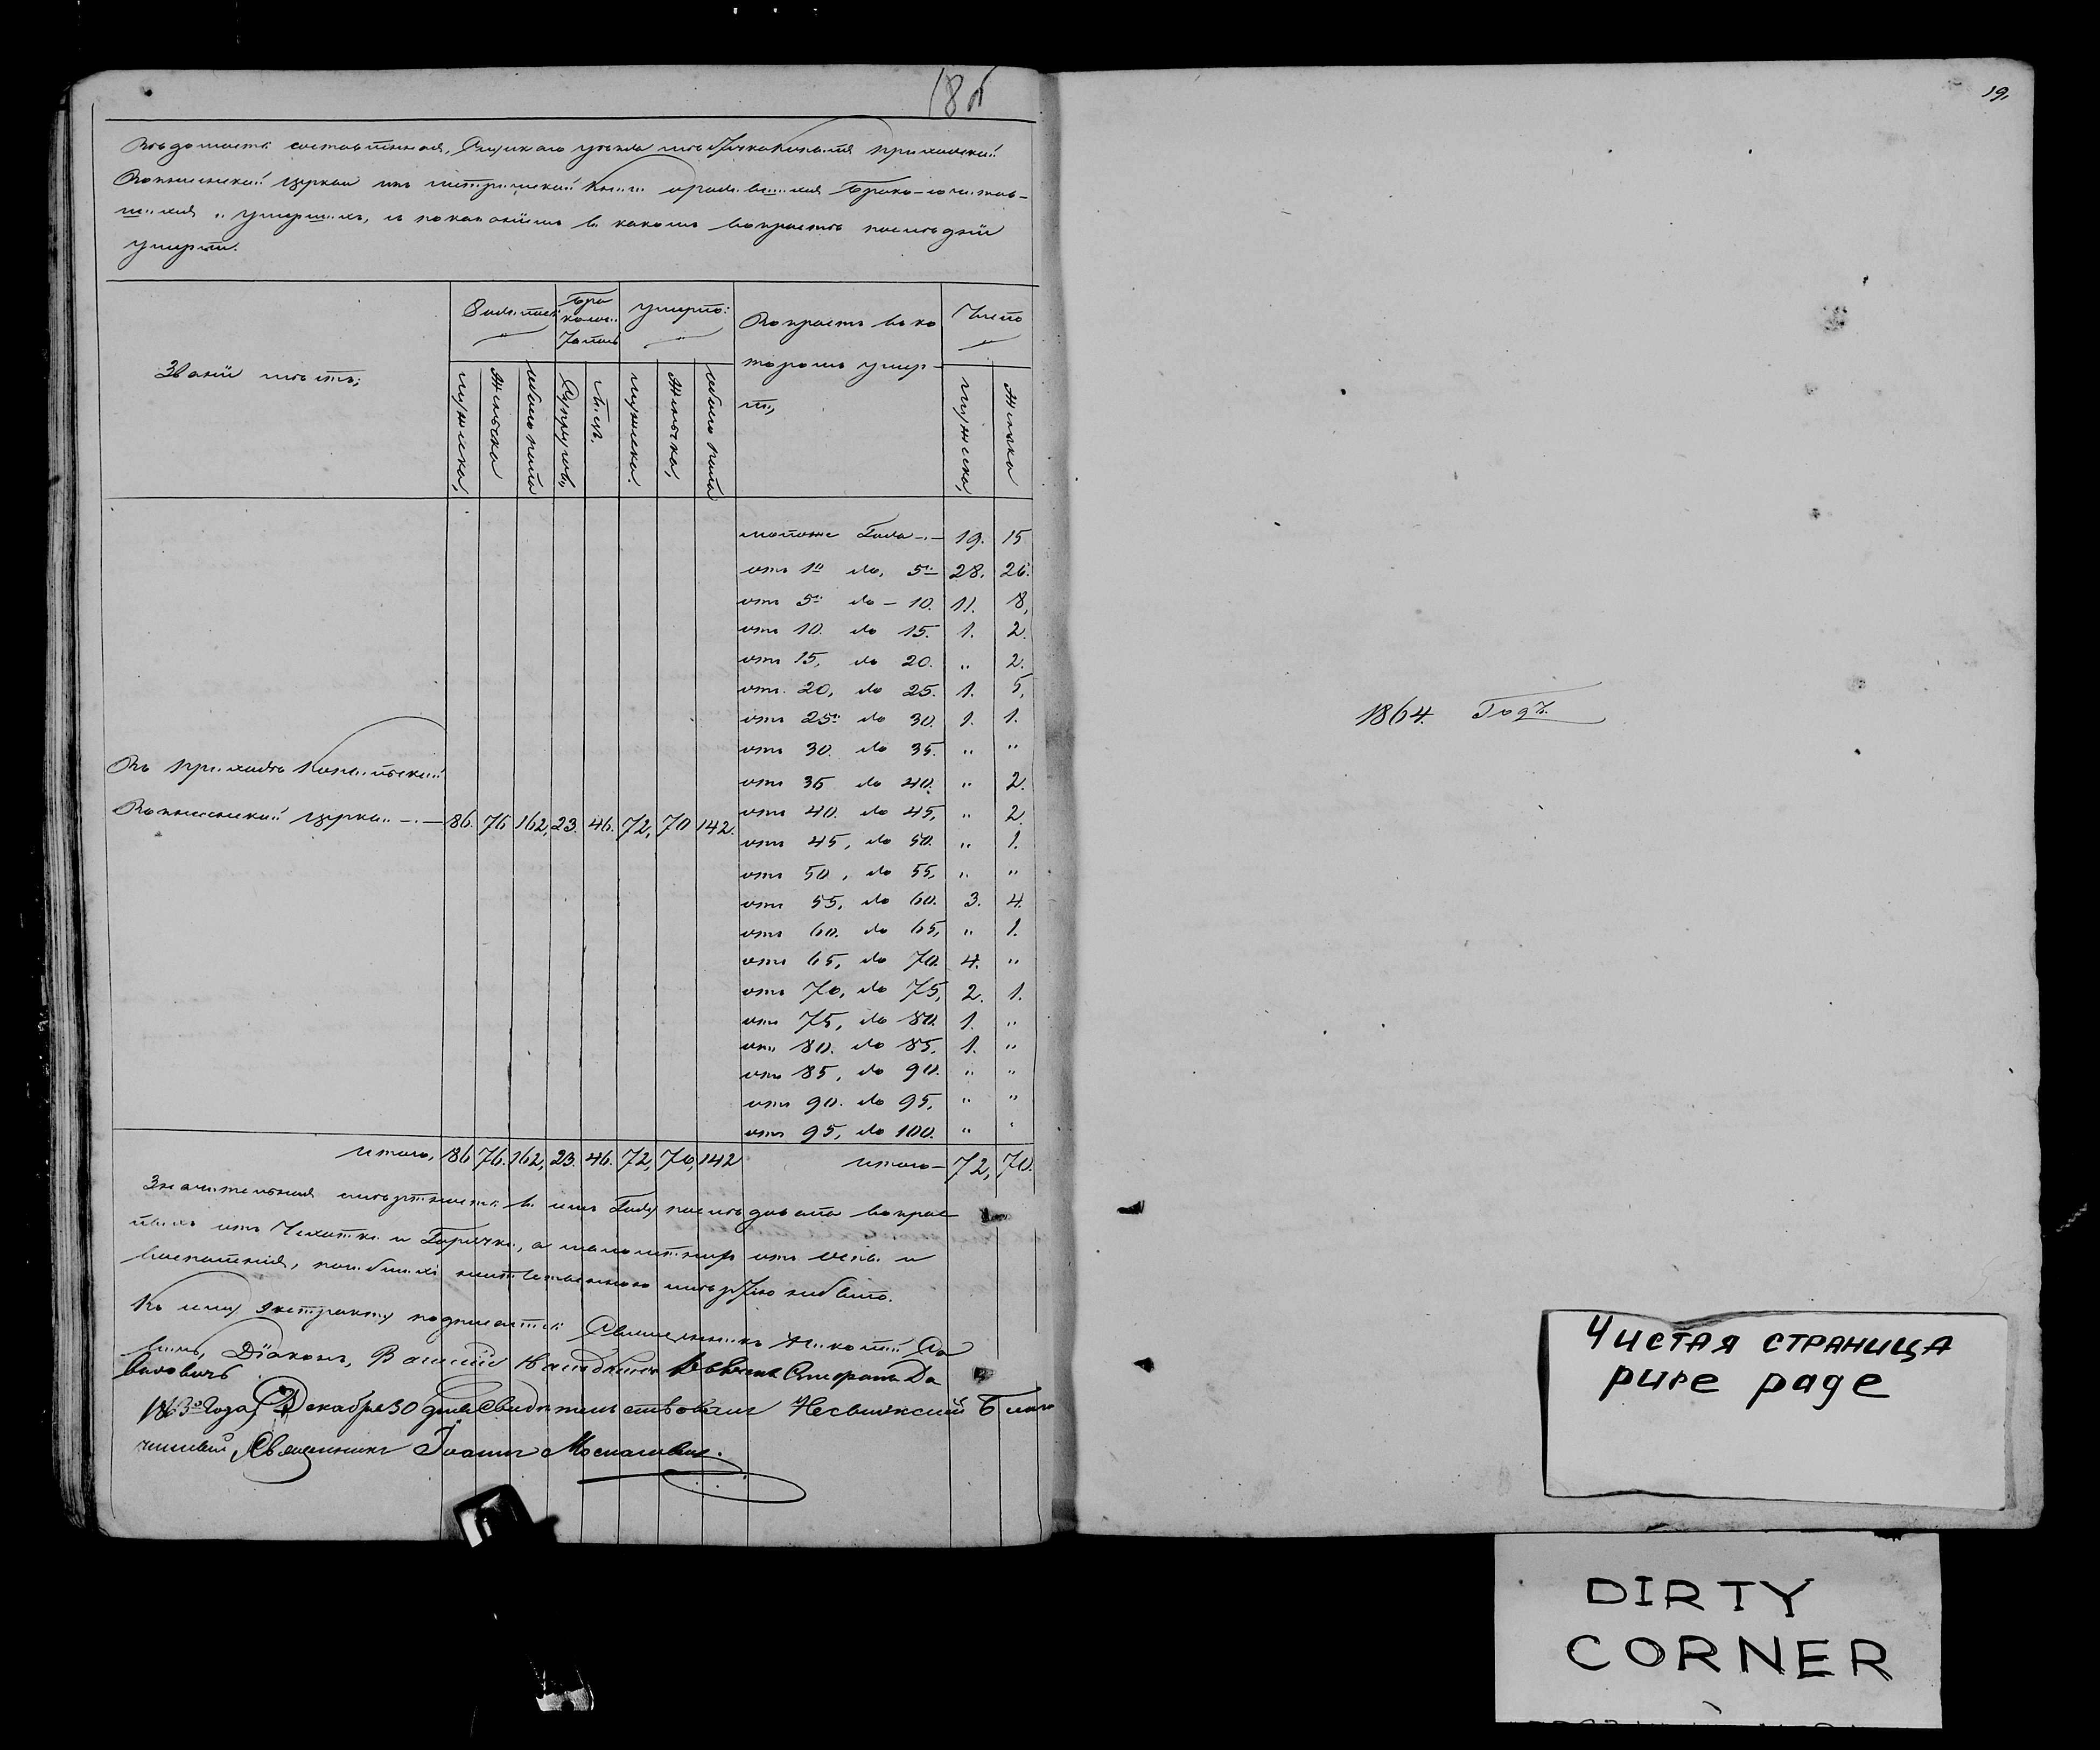 18б
Вѣдомость составленная, Слуцкаго уѣзда мѣстечка Копыля приходской
Вознесенской церкви изъ метрической книги о родившихся Брако-сочетав-
шихся и умершихъ, съ показаніемъ въ какомъ возрастѣ последніе
умерли.
Званіе мѣстъ;
Родилось
Бра
косоче
талось
умерло:
Возрастъ въ ко
торомъ умер-
ли,
Число
мужеска,
Женьска
обоего пола
Супруговъ,
Лицъ.
мужеска.
Женьска,
обоего пола
мужеска,
Женска
моложе Года - 19. 15
отъ 1го до, 5и 28. 26.
отъ 5и до - 10. 11. 8,
отъ 10. до 15. 1. 2.
отъ 15, до 20. „ 2.
отъ 20, до 25. 1. 5,
отъ 25и до 30. 1. 1.
отъ 30. до 35. „ „
отъ 35 до 40. „ 2.
отъ 40. до 45, „ 2.
отъ 45, до 50. „ 1.
отъ 50, до 55, „ „
отъ 55, до 60. 3. 4.
отъ 60. до 65, „ 1.
отъ 65, до 70. 4. „
отъ 70, до 75, 2. 1.
отъ 75, до 80. 1. „
отъ 80. до 85, 1. „
отъ 85, до 90. „ „
отъ 90. до 95, „ „
отъ 95, до 100. „ „
Въ приходѣ Копыльской
Вознесенской церкви - 86. 76 162, 23. 46. 72, 70 142.
итого, 86 76. 162, 23. 46. 72, 70, 142 итого - 72, 70.
Значительная смертность въ семъ Году последовала взрос
лыхъ отъ Чехотки и Горячки, а малолетнихъ отъ оспы и
воспаленія, погибшихъ неестественною смертію небыло.
Къ сему экстракту подписались Священникъ Николай
Діаконъ,
1863го года Декабря 30 дня Свидетельствовалъ Несвижскій Благо
чинный Священникъ Іоаннъ
19,
1864. Годъ.
Чистая страница
pure page
DIRTY
CORNER